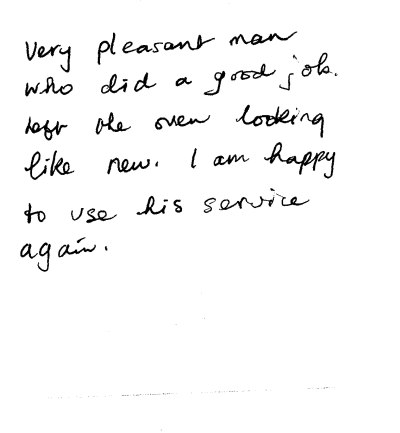 Very pleasant man
who did a good job.
Left the oven looking
like new. I am happy
to use his service
again.